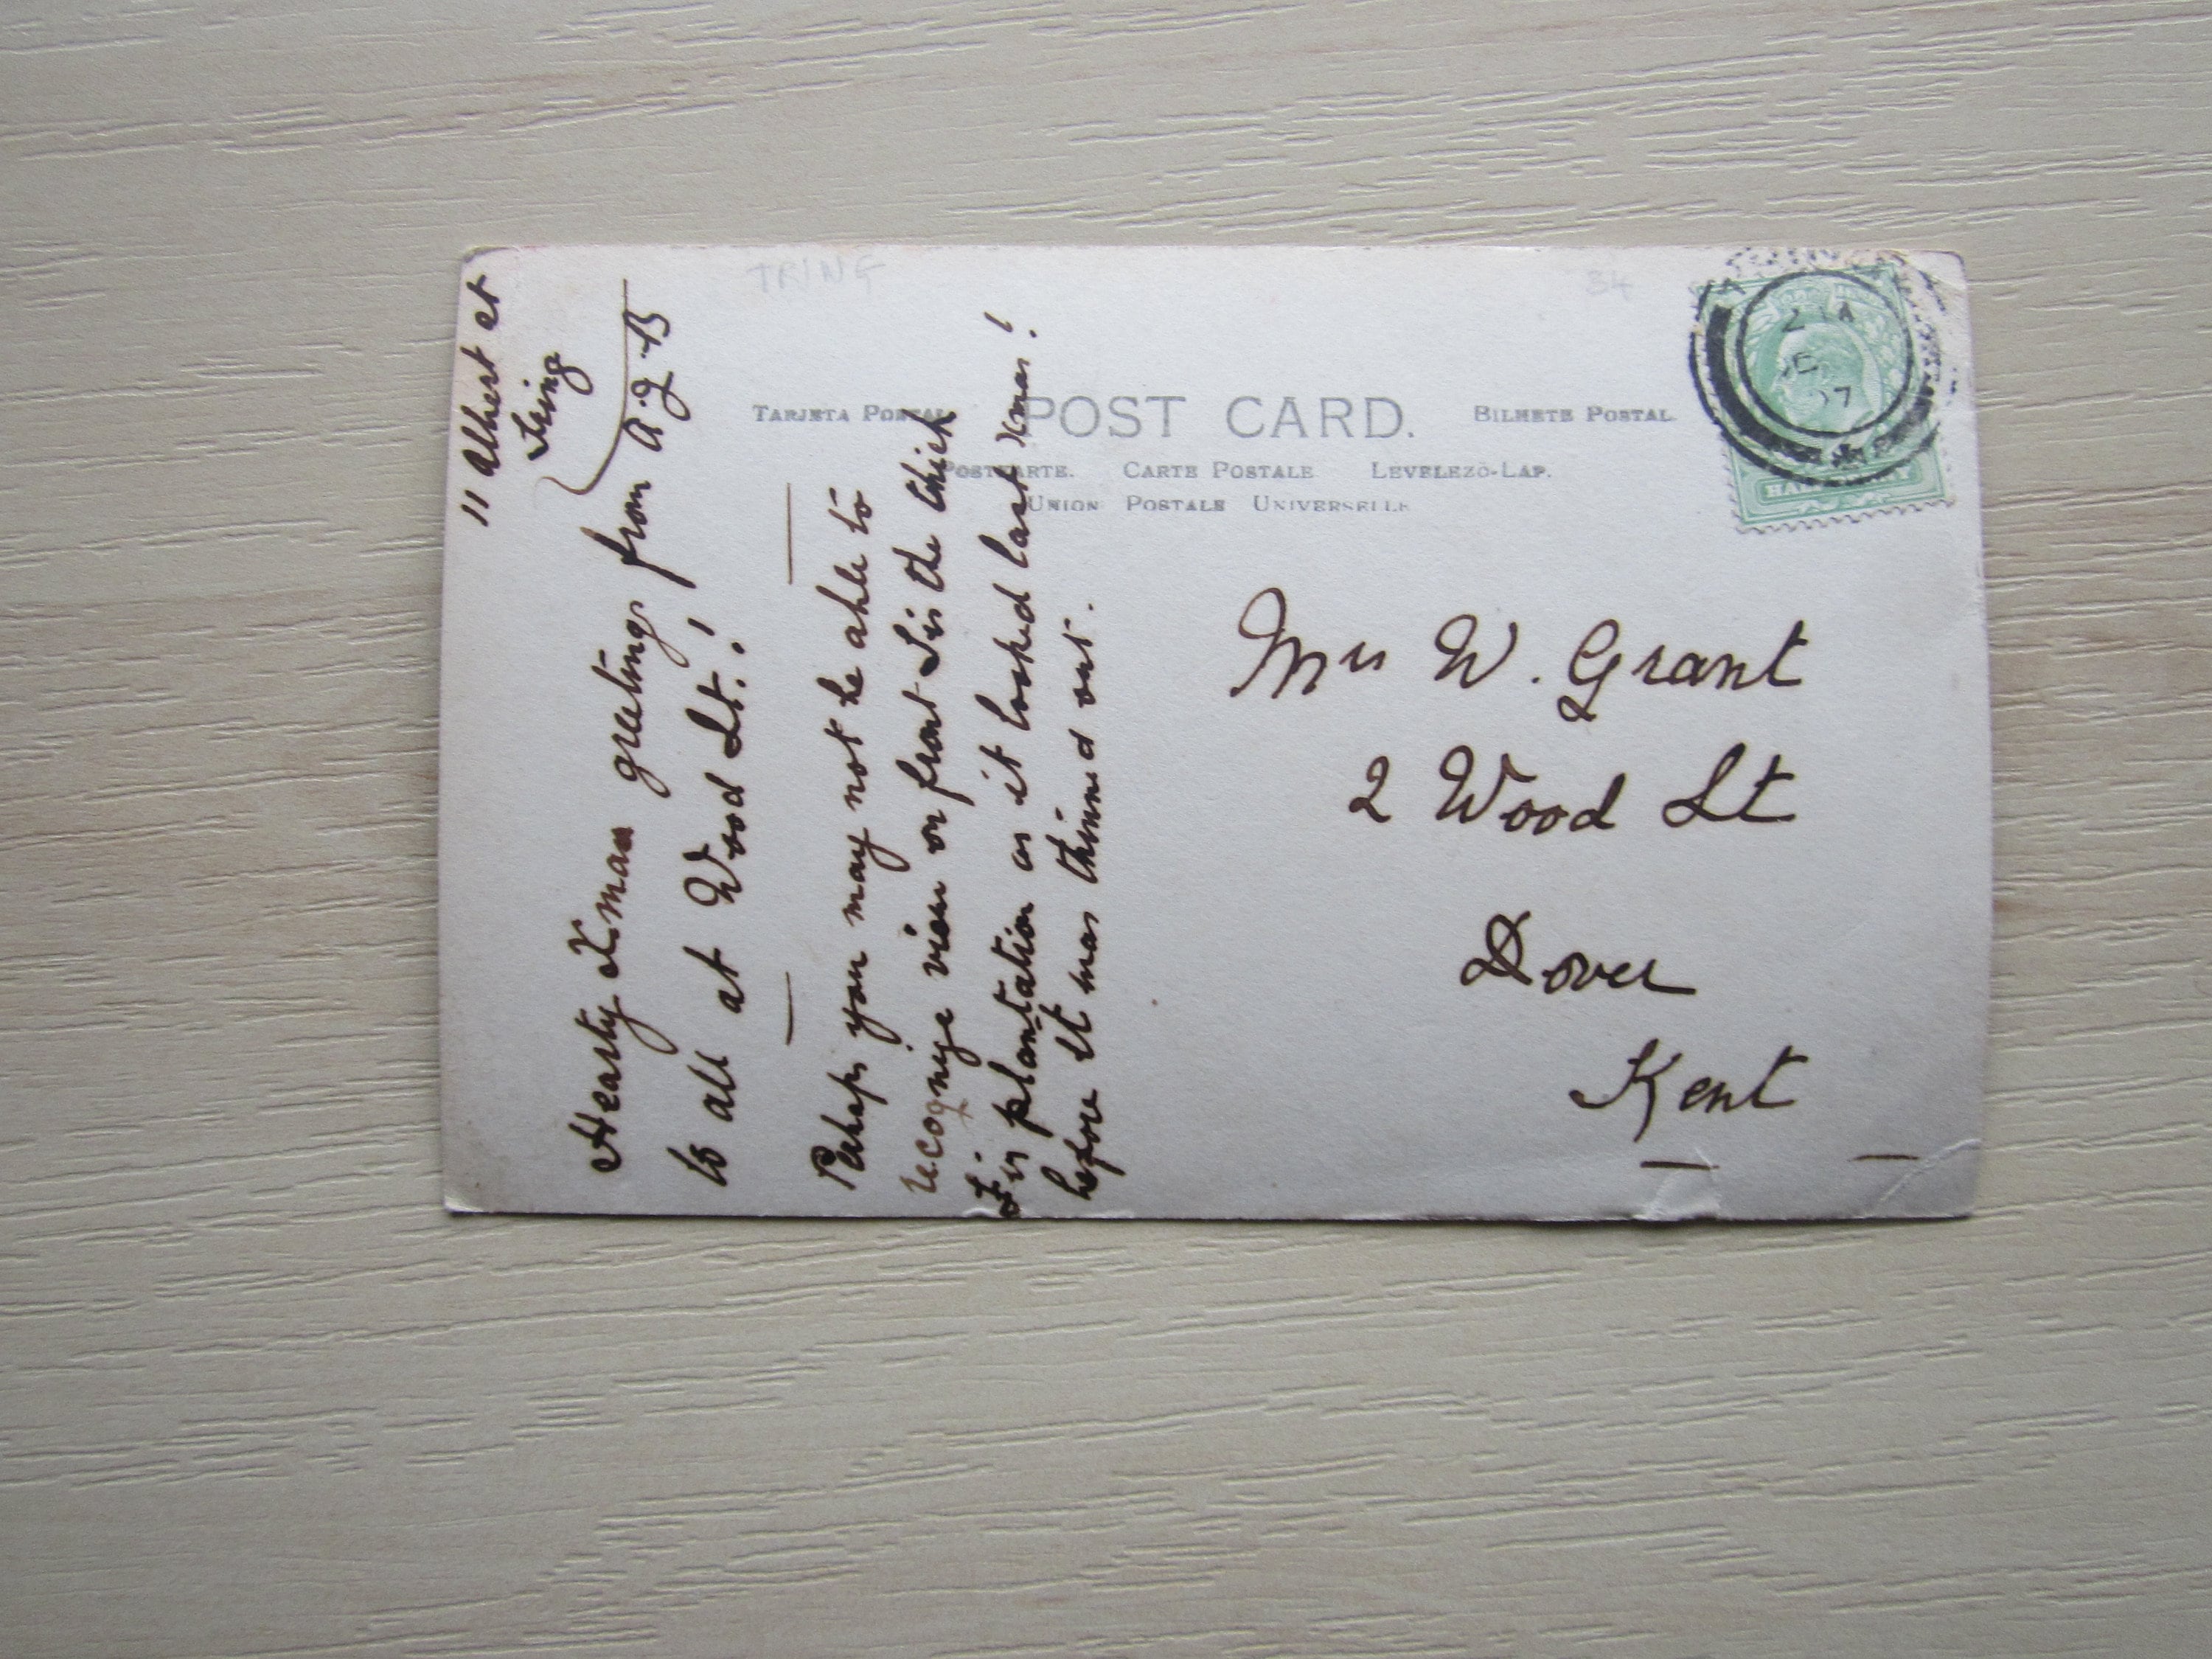 11 Albert St
Tring
Hearty Xmas greetings from A.J.B
to all at Wood St.!
Perhaps you may not be able to
recognize view on front. It is the thick
Fir plantation as it looked last Xmas!
before it was thinned out.
TRING
34
TARJETA POSTAL POST CARD. BILHETE POSTAL.
POSTKARTE. CARTE POSTALE LEVELEZŐ-LAP.
UNION POSTALE UNIVERSELLE
Mrs W. Grant
2 Wood St
Dover
Kent